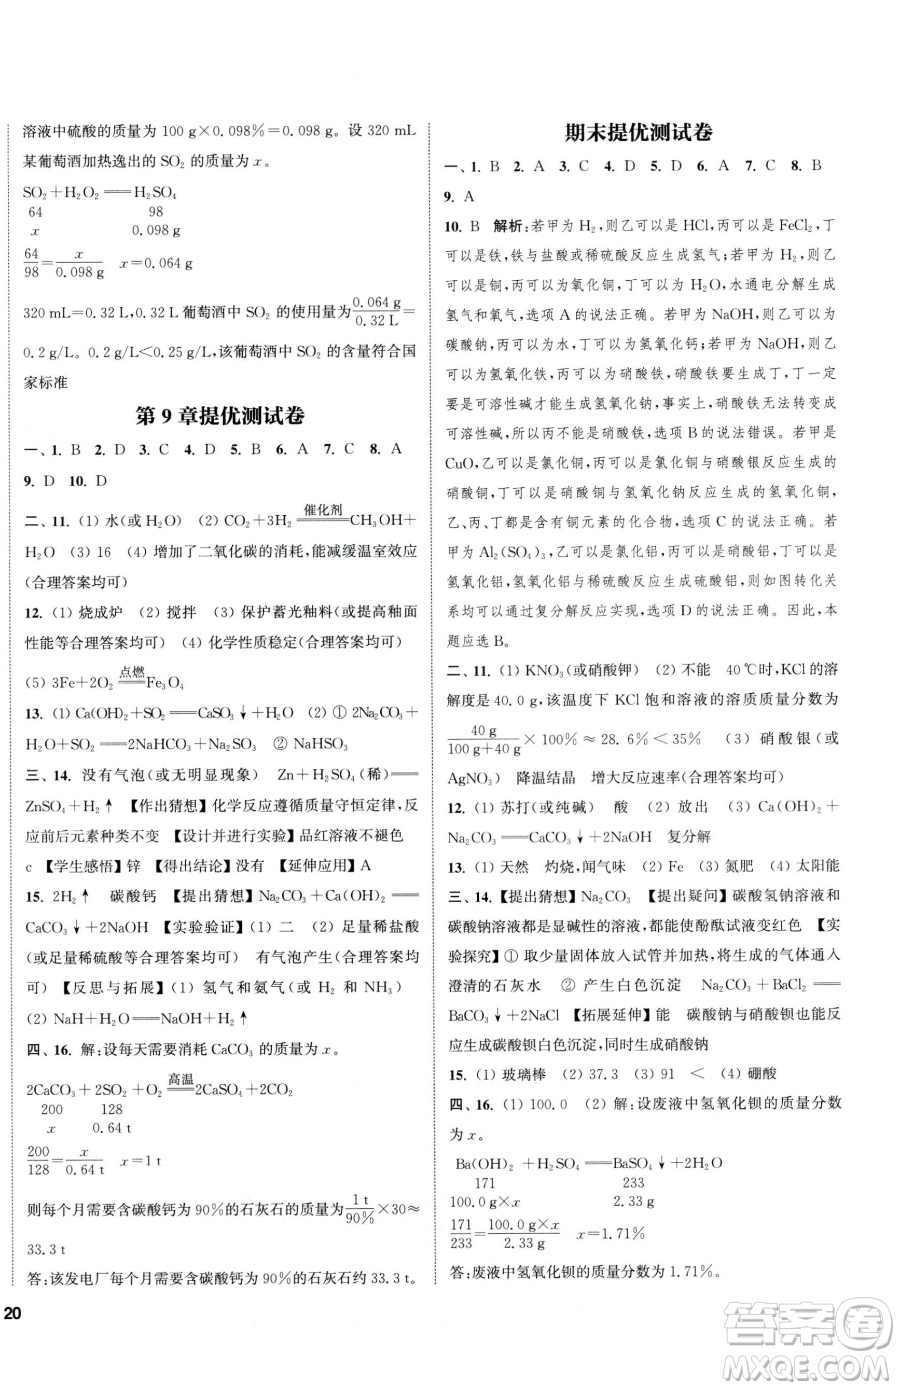 溶液中硫酸的质量为 100 g×0.098%=0.098 g。设 320 mL
某葡萄酒加热逸出的 SO₂ 的质量为 x。
SO₂+H₂O₂══H₂SO₄
64 98
x 0.098 g
64/98=x/0.098 g x=0.064 g
320 mL=0.32 L,0.32 L 葡萄酒中 SO₂ 的使用量为0.064 g/0.32 L=
0.2 g/L。0.2 g/L<0.25 g/L,该葡萄酒中 SO₂ 的含量符合国
家标准
第 9 章提优测试卷
一、1. B 2. D 3. C 4. D 5. B 6. A 7. C 8. A
9. D 10. D
二、11. (1) 水(或 H₂O) (2) CO₂+3H₂ ══催化剂══ CH₃OH+
H₂O (3) 16 (4) 增加了二氧化碳的消耗,能减缓温室效应
(合理答案均可)
12. (1) 烧成炉 (2) 搅拌 (3) 保护蓄光釉料(或提高釉面
性能等合理答案均可) (4) 化学性质稳定(合理答案均可)
(5) 3Fe+2O₂ ══点燃══ Fe₃O₄
13. (1) Ca(OH)₂+SO₂══CaSO₃↓+H₂O (2) ① 2Na₂CO₃+
H₂O+SO₂══2NaHCO₃+Na₂SO₃ ② NaHSO₃
三、14. 没有气泡(或无明显现象) Zn+H₂SO₄(稀)══
ZnSO₄+H₂↑ 【作出猜想】化学反应遵循质量守恒定律,反
应前后元素种类不变 【设计并进行实验】品红溶液不褪色
c 【学生感悟】锌 【得出结论】没有 【延伸应用】A
15. 2H₂↑ 碳酸钙 【提出猜想】Na₂CO₃+Ca(OH)₂══
CaCO₃↓+2NaOH 【实验验证】(1) 二 (2) 足量稀盐酸
(或足量稀硫酸等合理答案均可) 有气泡产生(合理答案均
可) 【反思与拓展】(1) 氢气和氨气(或 H₂ 和 NH₃)
(2) NaH+H₂O══NaOH+H₂↑
四、16. 解:设每天需要消耗 CaCO₃ 的质量为 x。
2CaCO₃+2SO₂+O₂ ══高温══ 2CaSO₄+2CO₂
200 128
x 0.64 t
200/128=x/0.64 t x=1 t
则每个月需要含碳酸钙为 90%的石灰石的质量为1 t/90%×30≈
33.3 t
答:该发电厂每个月需要含碳酸钙为 90%的石灰石约 33.3 t。
20
期末提优测试卷
一、1. B 2. A 3. C 4. D 5. D 6. A 7. C 8. B
9. A
10. B 解析:若甲为 H₂,则乙可以是 HCl,丙可以是 FeCl₂,丁
可以是铁,铁与盐酸或稀硫酸反应生成氢气;若甲为 H₂,则乙
可以是铜,丙可以是氧化铜,丁可以是 H₂O,水通电分解生成
氢气和氧气,选项 A 的说法正确。若甲为 NaOH,则乙可以是
碳酸钠,丙、丁可以是氢氧化钙;若甲为 NaOH,则乙可以是铁,
丙可以是氢氧化铁,丁可以是硝酸铁,硝酸铁要生成丁,丁必须
为可溶性碱才能生成氢氧化钠,事实上,硝酸铁无法转变成可
溶性碱,丙、丁不可能是硝酸铁,选项 B 的说法错误。若甲是
CuO,乙可以是氯化铜,丙可以是硝酸铜,氯化铜与硝酸银反应
生成硝酸铜,硝酸铜与氢氧化钠反应生成氢氧化铜,丁可以是
氢氧化铜,氢氧化铜受热分解生成氧化铜和水,此时,甲、
乙、丙、丁都是含有铜元素的化合物,选项 C 的说法正确。若
甲为 Al₂(SO₄)₃,则乙可以是氯化铝,丙可以是硝酸铝,丁可以是
氢氧化铝,氢氧化铝与稀硫酸反应生成硫酸铝,如图转化关
系均可以通过复分解反应实现,选项 D 的说法正确。因此,本
题应选 B。
二、11. (1) KNO₃(或硝酸钾) (2) 不能 40 ℃时,KCl 的溶
解度为 40.0 g,该温度下 KCl 饱和溶液的溶质质量分数为
40 g/(100 g+40 g)×100%≈28.6%<35% (3) 硝酸银(或
AgNO₃) 降温结晶 增大反应速率(合理答案均可)
12. (1) 苏打(或纯碱) 酸 (2) 放出 (3) Ca(OH)₂+
Na₂CO₃══CaCO₃↓+2NaOH 复分解
13. (1) 天然 灼烧,闻气味 (2) Fe (3) 氮肥 (4) 太阳能
三、14. 【提出猜想】Na₂CO₃ 【提出疑问】碳酸氢钠溶液和
碳酸钠溶液都是显碱性的溶液,都能使酚酞试液变红色 【实
验探究】① 少量固体放入试管并加热,将生成的气体通入
澄清的石灰水 ② 产生白色沉淀 Na₂CO₃+BaCl₂══
BaCO₃↓+2NaCl 【拓展延伸】能 碳酸钠与硝酸钡也能反
应生成碳酸钡白色沉淀,同时生成硝酸钠
15. (1) 玻璃棒 (2) 37.3 (3) 91 < (4) 硼酸
四、16. (1) 100.0 (2) 解:设废液中氢氧化钡的质量分数
为 x。
Ba(OH)₂+H₂SO₄══BaSO₄↓+2H₂O
171 233
100.0 g×x 2.33 g
171/233=100.0 g×x/2.33 g x≈1.71%
答:废液中氢氧化钡的质量分数为 1.71%。
答案圈
MXQE.COM